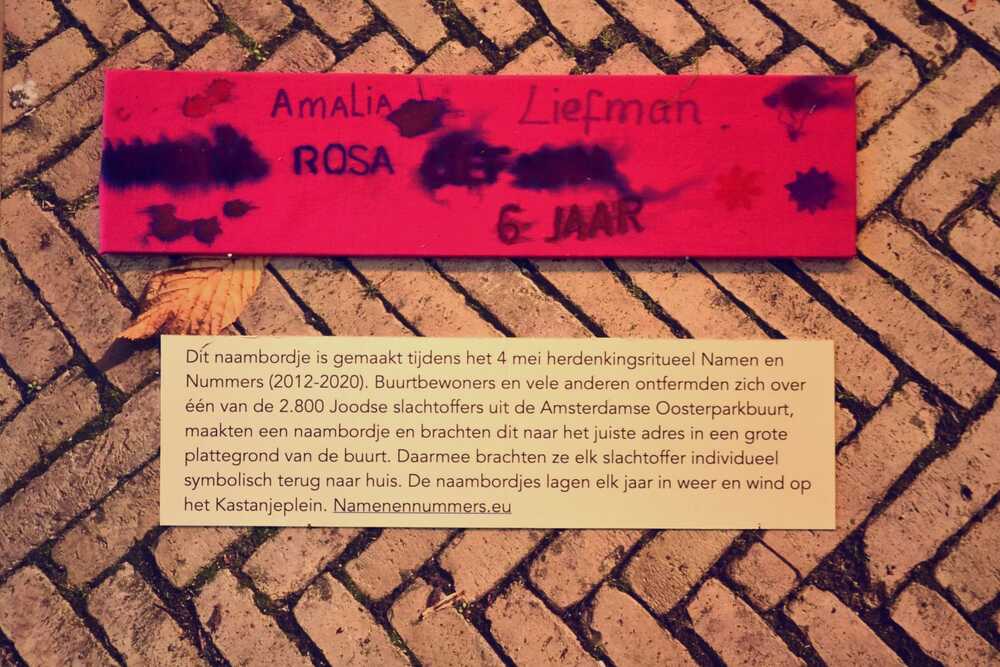 AMALIA Liefman
ROSA
6 JAAR
Dit naambordje is gemaakt tijdens het 4 mei herdenkingsritueel Namen en
Nummers (2012-2020). Buurtbewoners en vele anderen ontfermden zich over
één van de 2.800 Joodse slachtoffers uit de Amsterdamse Oosterparkbuurt,
maakten een naambordje en brachten dit naar het juiste adres in een grote
plattegrond van de buurt. Daarmee brachten ze elk slachtoffer individueel
symbolisch terug naar huis. De naambordjes lagen elk jaar in weer en wind op
het Kastanjeplein. Namenennummers.eu